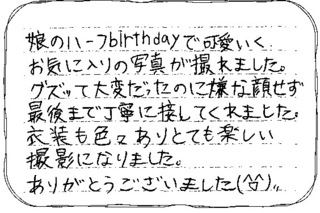 娘のハーフbirthdayで可愛いく
お気に入りの写真が撮れました。
グズッて大変だったのに嫌な顔せず
最後まで丁寧に接してくれました。
衣装も色々ありとても楽しい
撮影になりました。
ありがとうございました(^^)〃